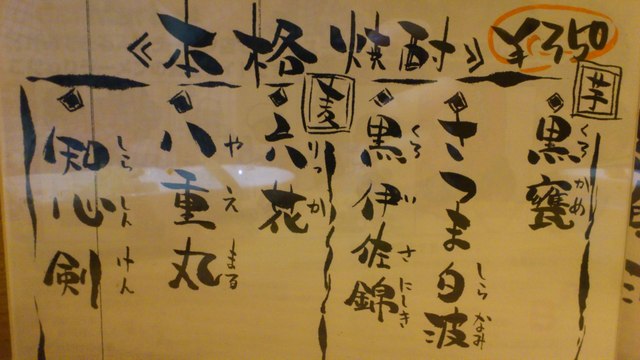 ≪本格焼酎≫ ¥350
芋
黒甕 くろかめ
さつま白波 しらなみ
黒伊佐錦 くろいさにしき
麦
六花 りっか
八重丸 やえまる
知心剣 しらしんけん